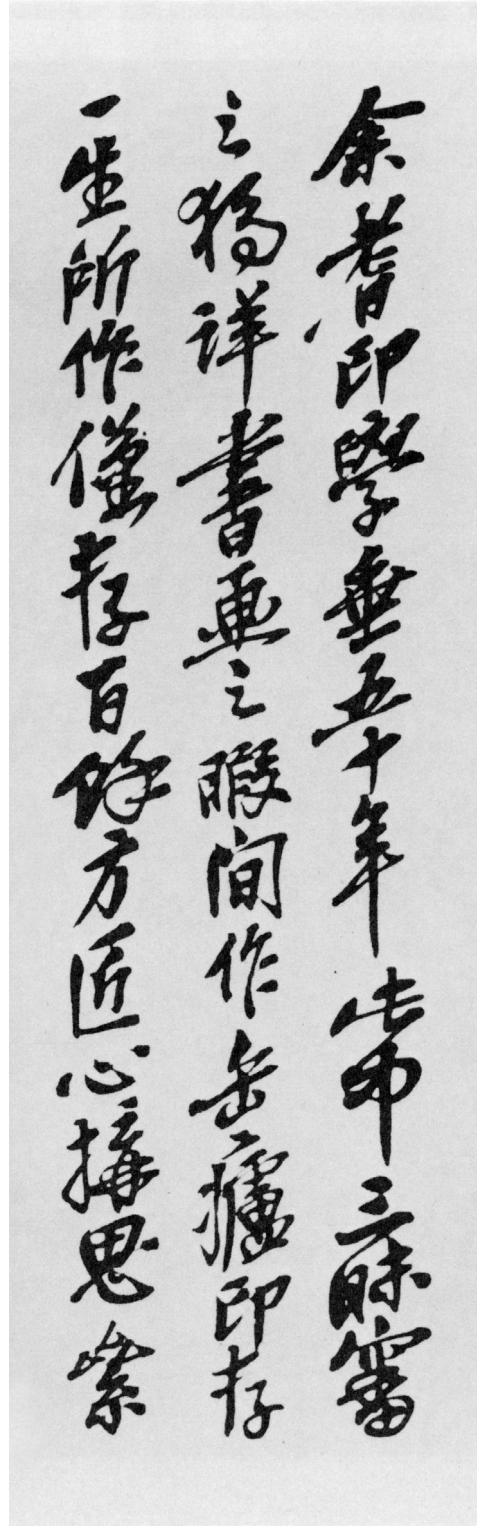 余耆印學垂五十年此中三昧審
之獨詳書畫之暇間作缶廬印存
一生所作僅存百餘方匠心搆思縈